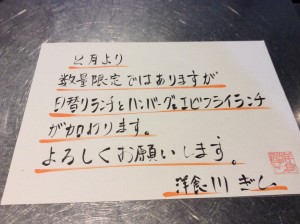 七月より
数量限定ではありますが
日替りランチとハンバーグ。エビフライランチ
が加わります。
よろしくお願いします。
洋食川ぎし